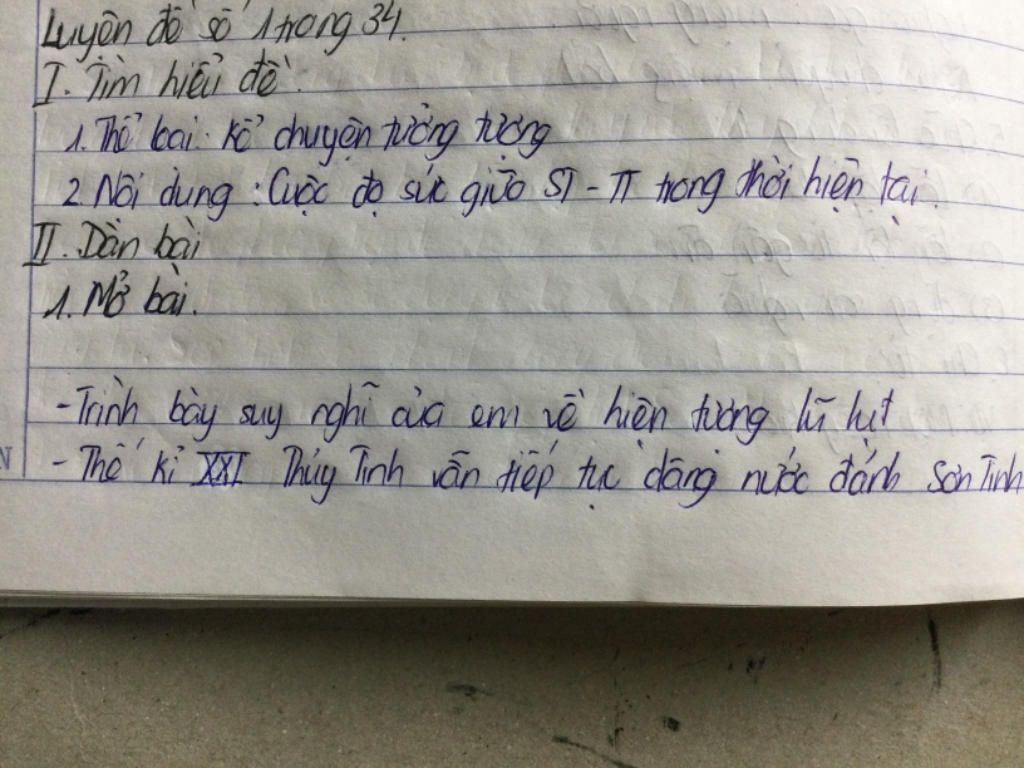 Luyện đề số 1 trang 34.
I. Tìm hiểu đề:
1. Thể loại: Kể chuyện tưởng tượng
2. Nội dung: Cuộc đọ sức giữa ST - TT trong thời hiện tại.
II. Dàn bài
1. Mở bài.
- Trình bày suy nghĩ của em về hiện tượng lũ lụt
- Thế kỉ XXI Thủy Tinh vẫn tiếp tục dâng nước đánh Sơn Tinh